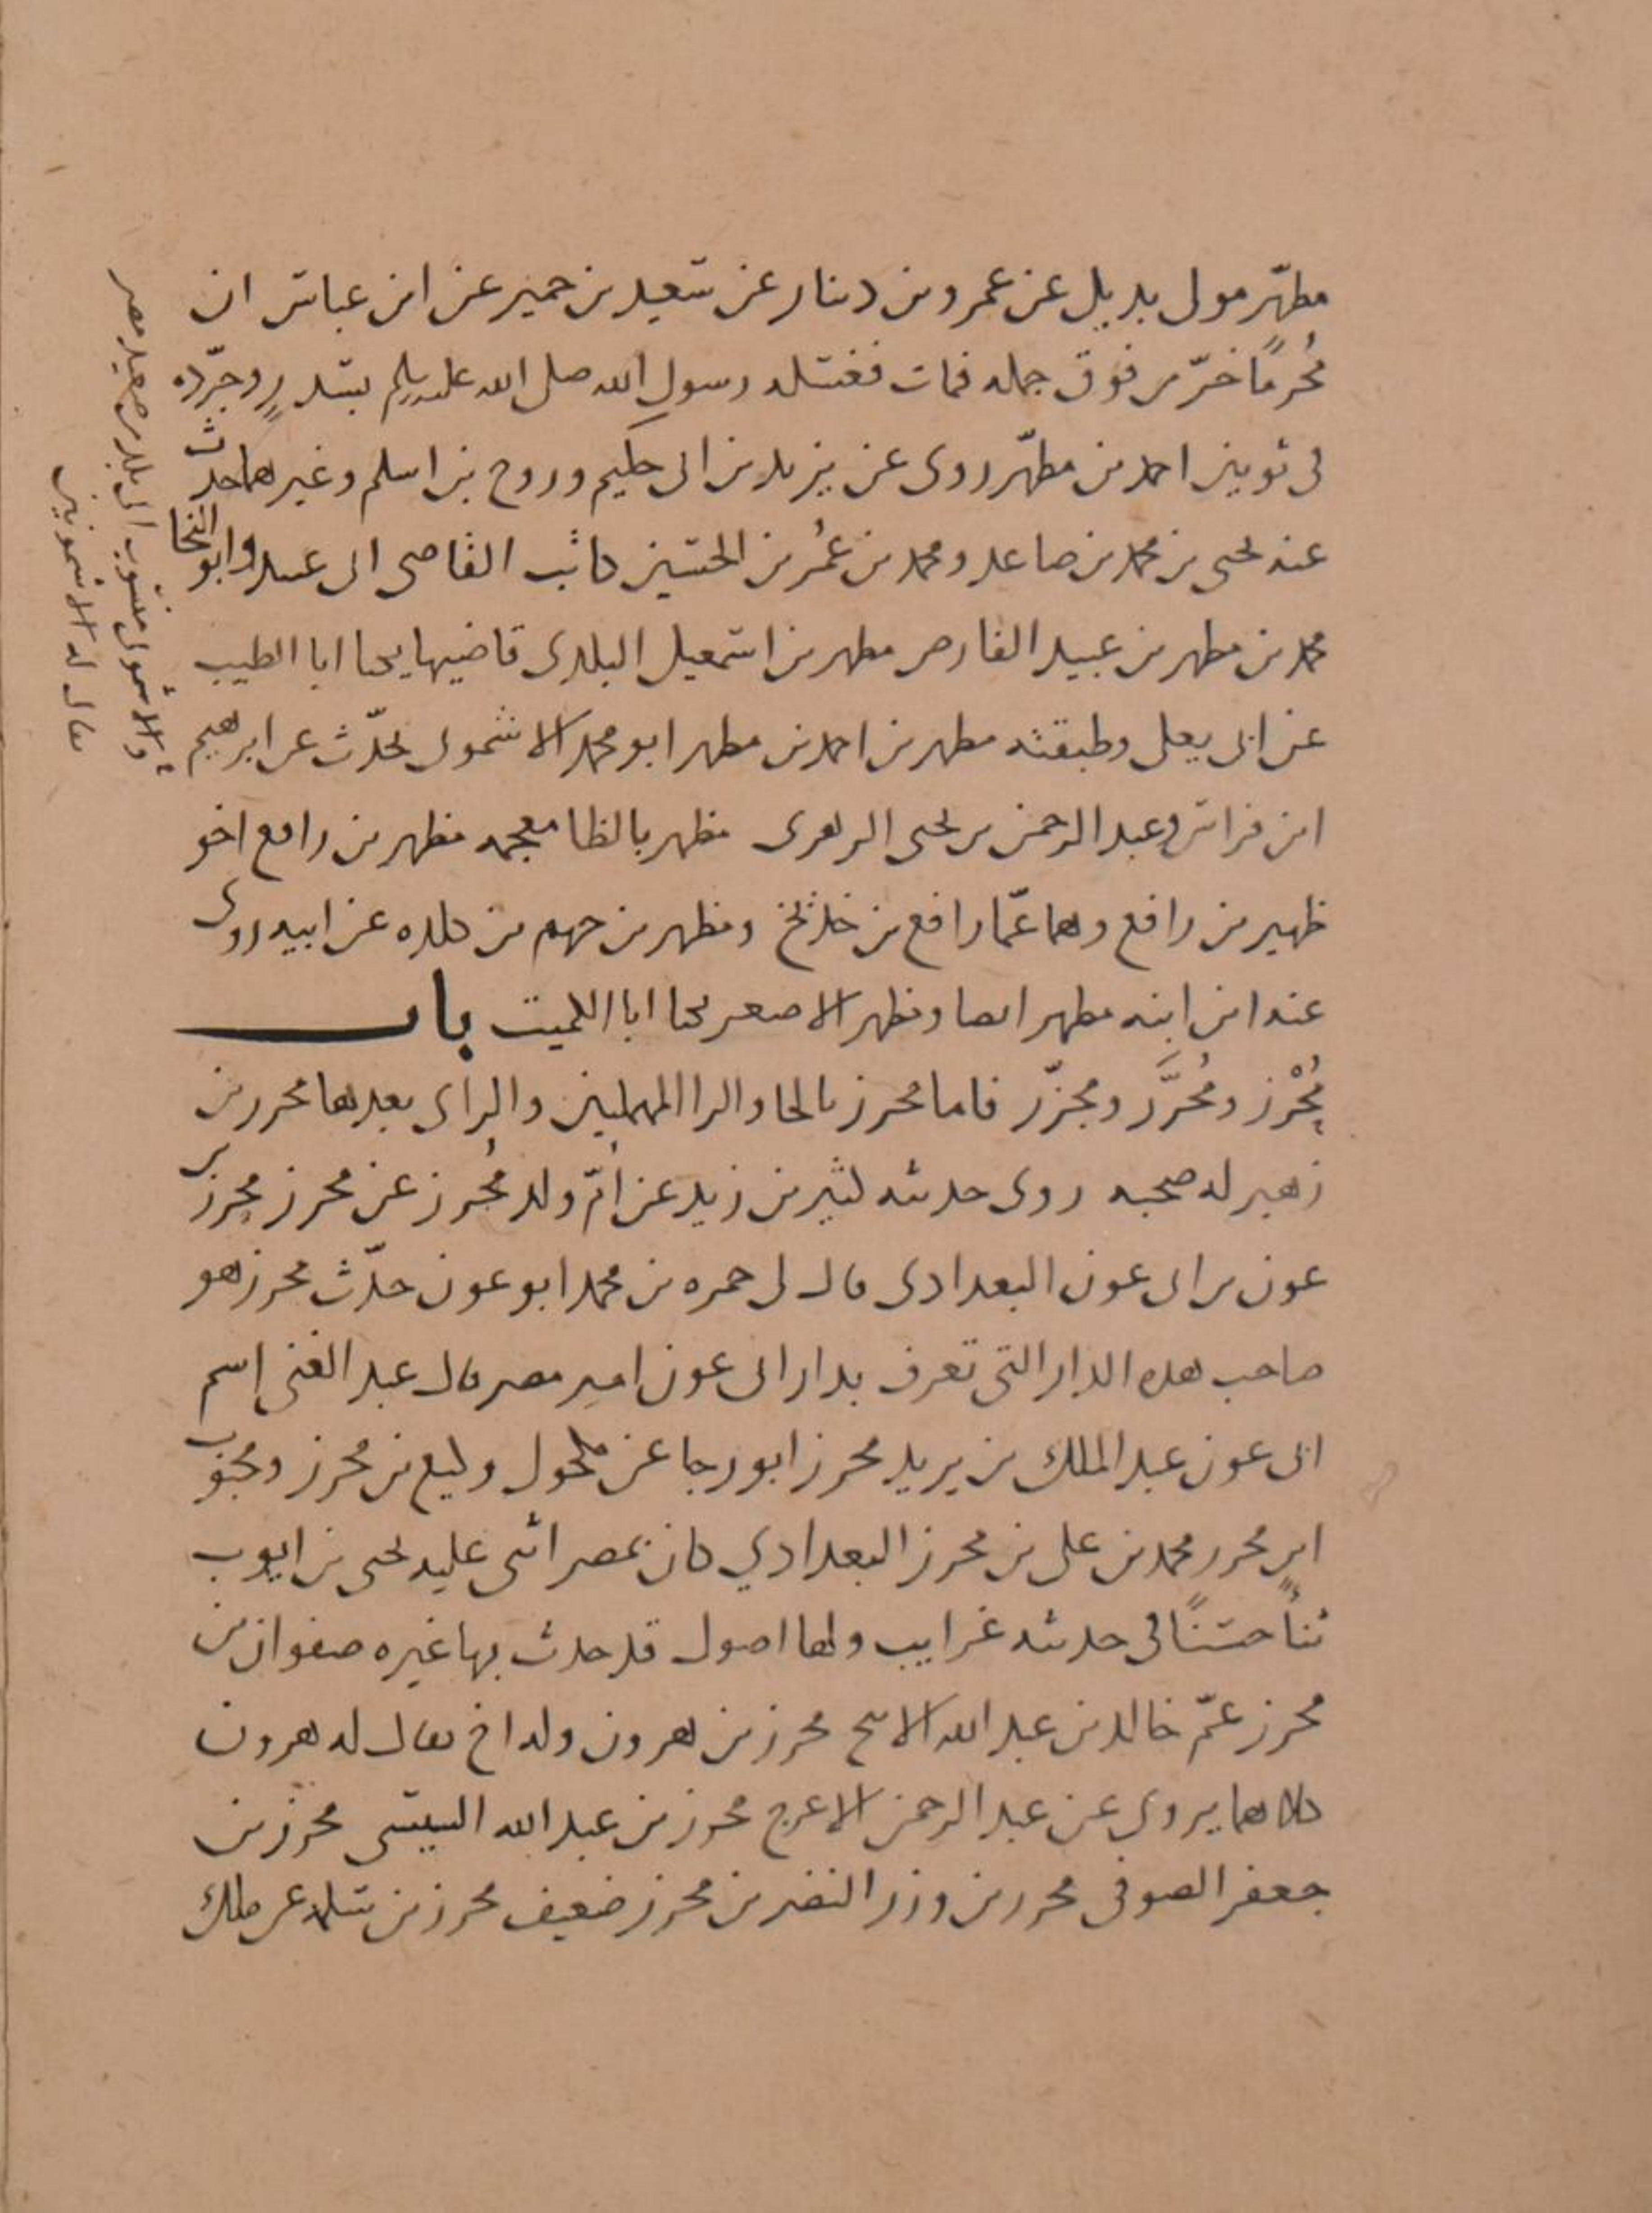 مطهّر مولى بديل عن عمرو بن دينار عن سعيد بن جبير عن ابن عباس ان
مُحرمًا خرّ من فوق جمله فمات فغسله رسول الله صلى الله عليه وسلم بسدرٍ وجرّده
في ثوبين احمد بن مطهّر روى عن يزيد بن ابي حكيم وروح بن اسلم وغيرهما حدث
عنه يحيى بن محمد بن صاعد ومحمد بن عُمر بن الحسين كاتب القاضي ابي عبيد وابو النجا
محمد بن مطهر بن عبيد الفارض مطهر بن اسمعيل البلدي قاضيها يكنا ابا الطيب
عن ابي يعلى وطبقته مطهر بن احمد بن مطهر ابو محمد الاشموني يحدّث عن ابرهيم
ابن فراس وعبد الرحمن بن يحيى الزهري مظهر بالظا معجمه مظهر بن رافع اخو
ظهير بن رافع وهما عمّا رافع بن خديج ومظهر بن جهم بن كلده عن ابيه روى
عنه ابن ابنه مظهر ايضا ومظهر الاصغر يكنا ابا الكميت باب
مُحْرِز ومُحَرَّر ومجزّر فاما محرز بالحا والرا المهملتين والزاي بعدها محرز بن
زهير له صحبه روى حديثه كثير بن زيد عن امّ ولد مُحرز عن محرز محرز بن
عون بن ابي عون البغدادي قال لي حمزه بن محمد ابو عون حدّث محرز هو
صاحب هذه الدار التي تعرف بدار ابي عون امير مصر قال عبد الغني إسم
ابي عون عبد الملك بن يزيد محرز ابو رجا عن مكحول وكيع بن محرز ومحبوب
ابن محرز محمد بن علي بن محرز البغدادي كان بمصر اثنى عليه يحيى بن ايوب
ثنأً حسنًا في حديثه غرايب ولها اصول قد حدث بها غيره صفوان بن
محرز عمّ خالد بن عبد الله الاشج محرز بن هرون وله اخ يقال له هرون
كلاهما يروي عن عبد الرحمن الاعرج محرز بن عبد الله محرز بن
جعفر الصوفي محرز بن وزر النضر بن محرز ضعيف محرز بن سلمه عن ملك
والاشموني منسوب الى بلد من صعيد مصر
يقال له الاشمونين